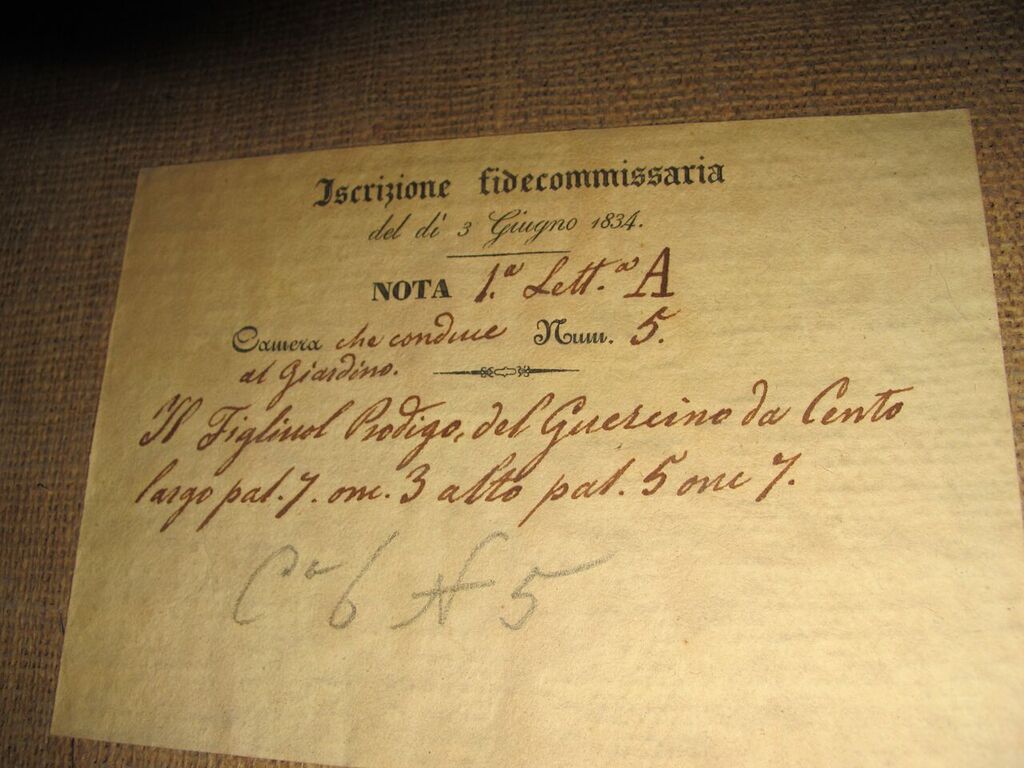 Iscrizione fidecommissaria
del dì 3 Giugno 1834.
NOTA 1.ª Lett.ª A
Camera che conduce Num. 5.
al Giardino.
Il Figliuol Prodigo, del Guercino da Cento
largo pal. 7. onc. 3 alto pal. 5 onc 7.
Cª 6 N 5